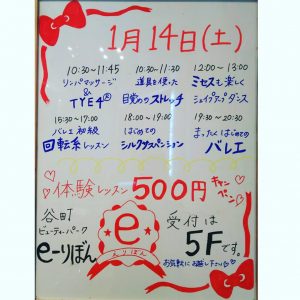 1月14日(土)
10:30〜11:45
リンパマッサージ
&
TYE4®
10:30〜11:30
道具を使った
目覚めのストレッチ
12:00〜13:00
ミセスも楽しく
シェイプアップダンス
15:30〜17:00
バレエ初級
回転系レッスン
18:00〜19:00
はじめての
シルクサスペンション
19:30〜20:30
まったくはじめての
バレエ
体験レッスン 500円 キャンペーン
谷町
ビューティーパーク
e-りぼん
e
えりぼん
受付は
5Fです。
お気軽にお越し下さい